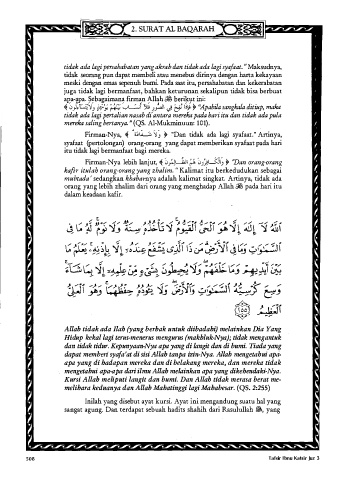 2. SURAT AL BAQARAH
tidak ada lagi persahabatan yang akrab dan tidak ada lagi syafaat." Maksudnya,
tidak seorang pun dapat membeli atau menebus dirinya dengan harta kekayaan
meski dengan emas sepenuh bumi. Pada saat itu, persahabatan dan kekerabatan
juga tidak lagi bermanfaat, bahkan keturunan sekalipun tidak bisa berbuat
apa-apa. Sebagaimana firman Allah ﷻ berikut ini:
﴿ فَإِذَا نُفِخَ فِي الصُّورِ فَلَا أَنسَابَ بَيْنَهُمْ يَوْمَئِذٍ وَلَا يَتَسَاءَلُونَ ﴾ "Apabila sangkala ditiup, maka
tidak ada lagi pertalian nasab di antara mereka pada hari itu dan tidak ada pula
mereka saling bertanya." (QS. Al-Mukminuun: 101).
Firman-Nya, ﴿ وَلَا شَفَاعَةٌ ﴾ "Dan tidak ada lagi syafaat." Artinya,
syafaat (pertolongan) orang-orang yang dapat memberikan syafaat pada hari
itu tidak lagi bermanfaat bagi mereka.
Firman-Nya lebih lanjut, ﴿ وَالْكَافِرُونَ هُمُ الظَّالِمُونَ ﴾ "Dan orang-orang
kafir itulah orang-orang yang zhalim." Kalimat itu berkedudukan sebagai
mubtada' sedangkan khabarnya adalah kalimat singkat. Artinya, tidak ada
orang yang lebih zhalim dari orang yang menghadap Allah ﷻ pada hari itu
dalam keadaan kafir.
اللَّهُ لَا إِلَٰهَ إِلَّا هُوَ الْحَيُّ الْقَيُّومُ لَا تَأْخُذُهُ سِنَةٌ وَلَا نَوْمٌ لَّهُ مَا فِي
السَّمَاوَاتِ وَمَا فِي الْأَرْضِ مَن ذَا الَّذِي يَشْفَعُ عِندَهُ إِلَّا بِإِذْنِهِ يَعْلَمُ مَا
بَيْنَ أَيْدِيهِمْ وَمَا خَلْفَهُمْ وَلَا يُحِيطُونَ بِشَيْءٍ مِّنْ عِلْمِهِ إِلَّا بِمَا شَاءَ
وَسِعَ كُرْسِيُّهُ السَّمَاوَاتِ وَالْأَرْضَ وَلَا يَئُودُهُ حِفْظُهُمَا وَهُوَ الْعَلِيُّ
الْعَظِيمُ ٢٥٥
Allah tidak ada Ilah (yang berhak untuk diibadahi) melainkan Dia Yang
Hidup kekal lagi terus-menerus mengurus (makhluk-Nya); tidak mengantuk
dan tidak tidur. Kepunyaan-Nya apa yang di langit dan di bumi. Tiada yang
dapat memberi syafa'at di sisi Allah tanpa izin-Nya. Allah mengetahui apa-
apa yang di hadapan mereka dan di belakang mereka, dan mereka tidak
mengetahui apa-apa dari ilmu Allah melainkan apa yang dikehendaki-Nya.
Kursi Allah meliputi langit dan bumi. Dan Allah tidak merasa berat me-
melihara keduanya dan Allah Mahatinggi lagi Mahabesar. (QS. 2:255)
Inilah yang disebut ayat kursi. Ayat ini mengandung suatu hal yang
sangat agung. Dan terdapat sebuah hadits shahih dari Rasulullah ﷺ, yang
508
Tafsir Ibnu Katsir Juz 3